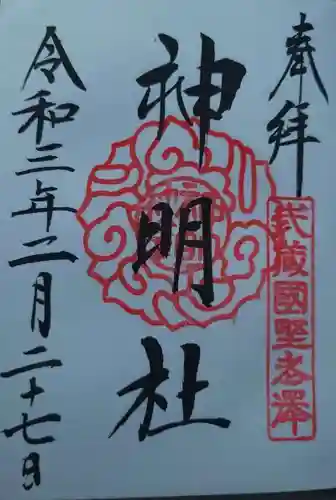 奉拝
武蔵國野老澤
神明社
令和三年二月二十七日